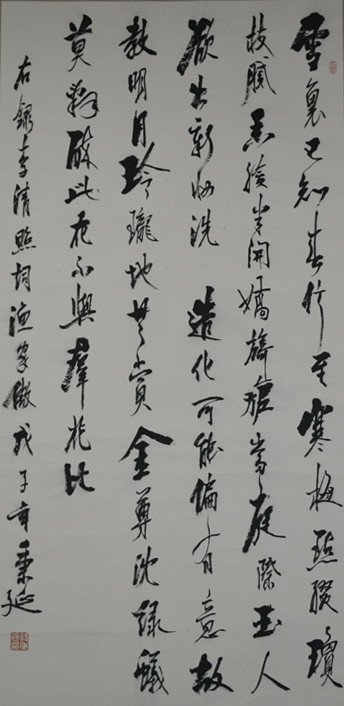 雪裏已知春信至寒梅點綴瓊
枝膩香臉半開嬌旖旎當庭際玉人
浴出新妝洗 造化可能偏有意故
教明月玲瓏地共賞金尊沈綠蟻
莫辭醉此花不與羣花比
右錄李清照詞漁家傲戊子秉延